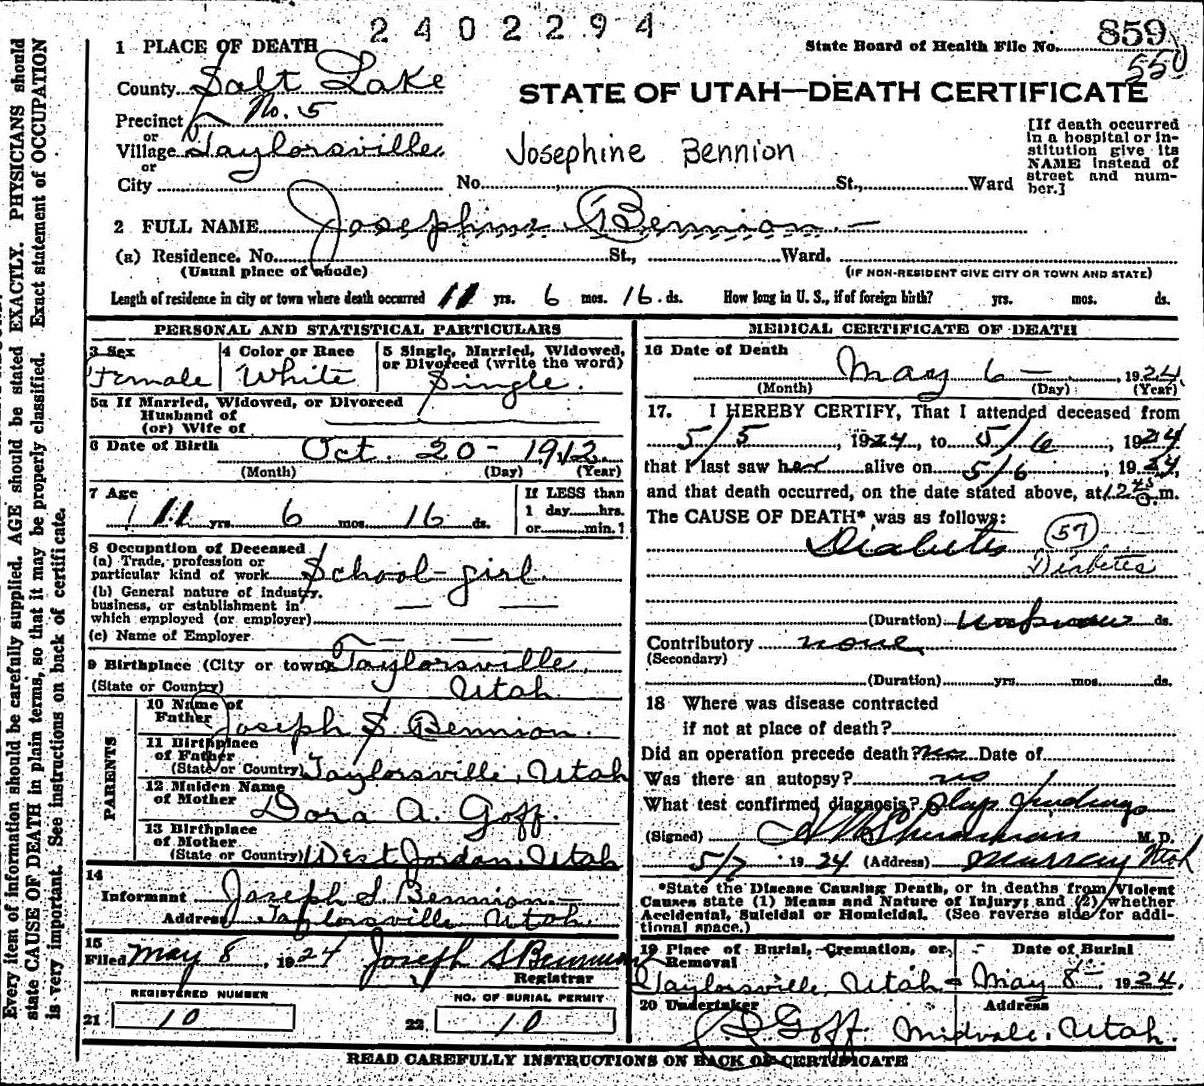 2402294
State Board of Health File No. 859
550
1 PLACE OF DEATH
County Salt Lake
STATE OF UTAH—DEATH CERTIFICATE
Precinct No. 5
or
Village Taylorsville
or
City No. St., Ward
Josephine Bennion
[If death occurred
in a hospital or in-
stitution give its
NAME instead of
street and num-
ber.]
2 FULL NAME Josephine Bennion
(a) Residence. No. St., Ward.
(Usual place of abode) (IF NON-RESIDENT GIVE CITY OR TOWN AND STATE)
Length of residence in city or town where death occurred 11 yrs. 6 mos. 16 ds. How long in U. S., if of foreign birth? yrs. mos. ds.
PERSONAL AND STATISTICAL PARTICULARS
3 Sex
Female
4 Color or Race
White
5 Single, Married, Widowed,
or Divorced (write the word)
Single.
5a If Married, Widowed, or Divorced
Husband of
(or) Wife of
6 Date of Birth Oct. 20 - 1912
(Month) (Day) (Year)
7 Age
11 yrs 6 mos. 16 ds.
If LESS than
1 day hrs.
or min.?
8 Occupation of Deceased
(a) Trade, profession or
particular kind of work School-girl
(b) General nature of industry,
business, or establishment in
which employed (or employer)
(c) Name of Employer
9 Birthplace (City or town) Taylorsville,
(State or Country) Utah
PARENTS
10 Name of
Father Joseph S. Bennion.
11 Birthplace
of Father
(State or Country) Taylorsville, Utah
12 Maiden Name
of Mother Dora A. Goff.
13 Birthplace
of Mother
(State or Country) West Jordan, Utah
14
Informant Joseph S. Bennion
Address Taylorsville Utah.
15
Filed May 8, 1924 Joseph S Bennion
Registrar
REGISTERED NUMBER
21 10
NO. OF BURIAL PERMIT
22 10
MEDICAL CERTIFICATE OF DEATH
16 Date of Death
May 6 — , 1924
(Month) (Day) (Year)
17. I HEREBY CERTIFY, That I attended deceased from
5/5, 1924, to 5/6, 1924
that I last saw her alive on 5/6, 1924,
and that death occurred, on the date stated above, at 12 45 a.m.
The CAUSE OF DEATH* was as follows:
Diabetes 57
Diabetes
(Duration) unknown ds.
Contributory none
(Secondary)
(Duration) yrs. mos. ds.
18 Where was disease contracted
if not at place of death?
Did an operation precede death? no Date of
Was there an autopsy? no
What test confirmed diagnosis? findings
(Signed) M. D.
5/7, 1924 (Address) Murray Utah
*State the Disease Causing Death, or in deaths from Violent
Causes state (1) Means and Nature of Injury; and (2) whether
Accidental, Suicidal or Homicidal. (See reverse side for addi-
tional space.)
19 Place of Burial, Cremation, or
Removal
Taylorsville, Utah
Date of Burial
May 8 — 1924.
20 Undertaker Address
Goff. Midvale, Utah.
READ CAREFULLY INSTRUCTIONS ON BACK OF CERTIFICATE
Every item of information should be carefully supplied. AGE should be stated EXACTLY. PHYSICIANS should
state CAUSE OF DEATH in plain terms, so that it may be properly classified. Exact statement of OCCUPATION
is very important. See instructions on back of certificate.